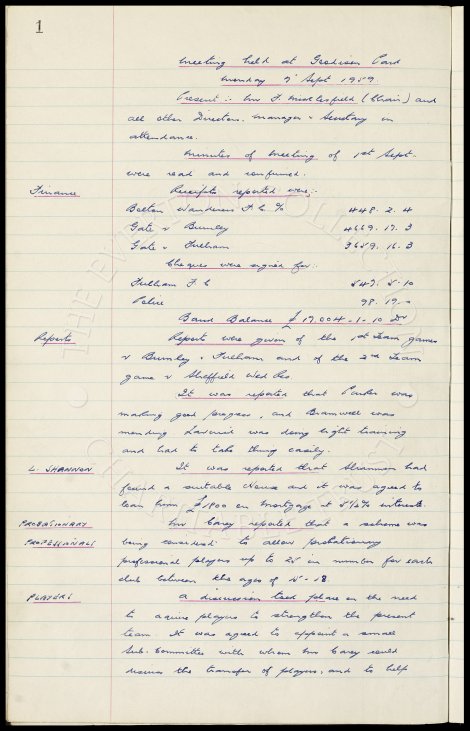 1
Meeting held at Goodison Park
Monday 7 Sept 1959.
Present :- Mr F. Micklesfield (Chair) and
all other Directors. Manager & Secretary in
attendance.
Minutes of Meeting of 1st Sept.
were read and confirmed.
Finance Receipts reported were :-
Bolton Wanderers F.C. % 448. 2. 4
Gate v Burnley 4669. 17. 3
Gate v Fulham 3659. 16. 3
Cheques were signed for :-
Fulham F.C 547. 5. 10
Police 98. 19. 0
Bank Balance £17,004-1-10 Dr
Reports Reports were given of the 1st Team games
v Burnley & Fulham and of the 2nd Team
game v Sheffield Wed Res.
It was reported that Parker was
making good progress, and Bramwell was
mending Laverick was doing light training
and had to take things easily.
L. SHANNON It was reported that Shannon had
found a suitable House and it was agreed to
loan him £1800 on mortgage at 5½% interest.
PROBATIONARY Mr Carey reported that a scheme was
PROFESSIONALS being considered to allow probationary
professional players up to 25 in number for each
club between the ages of 15-18.
PLAYERS A discussion took place on the need
to aquire players to strengthen the present
team. It was agreed to appoint a small
Sub. Committee with whom Mr Carey could
discuss the transfer of players, and to help
THE EVERTON COLLECTION